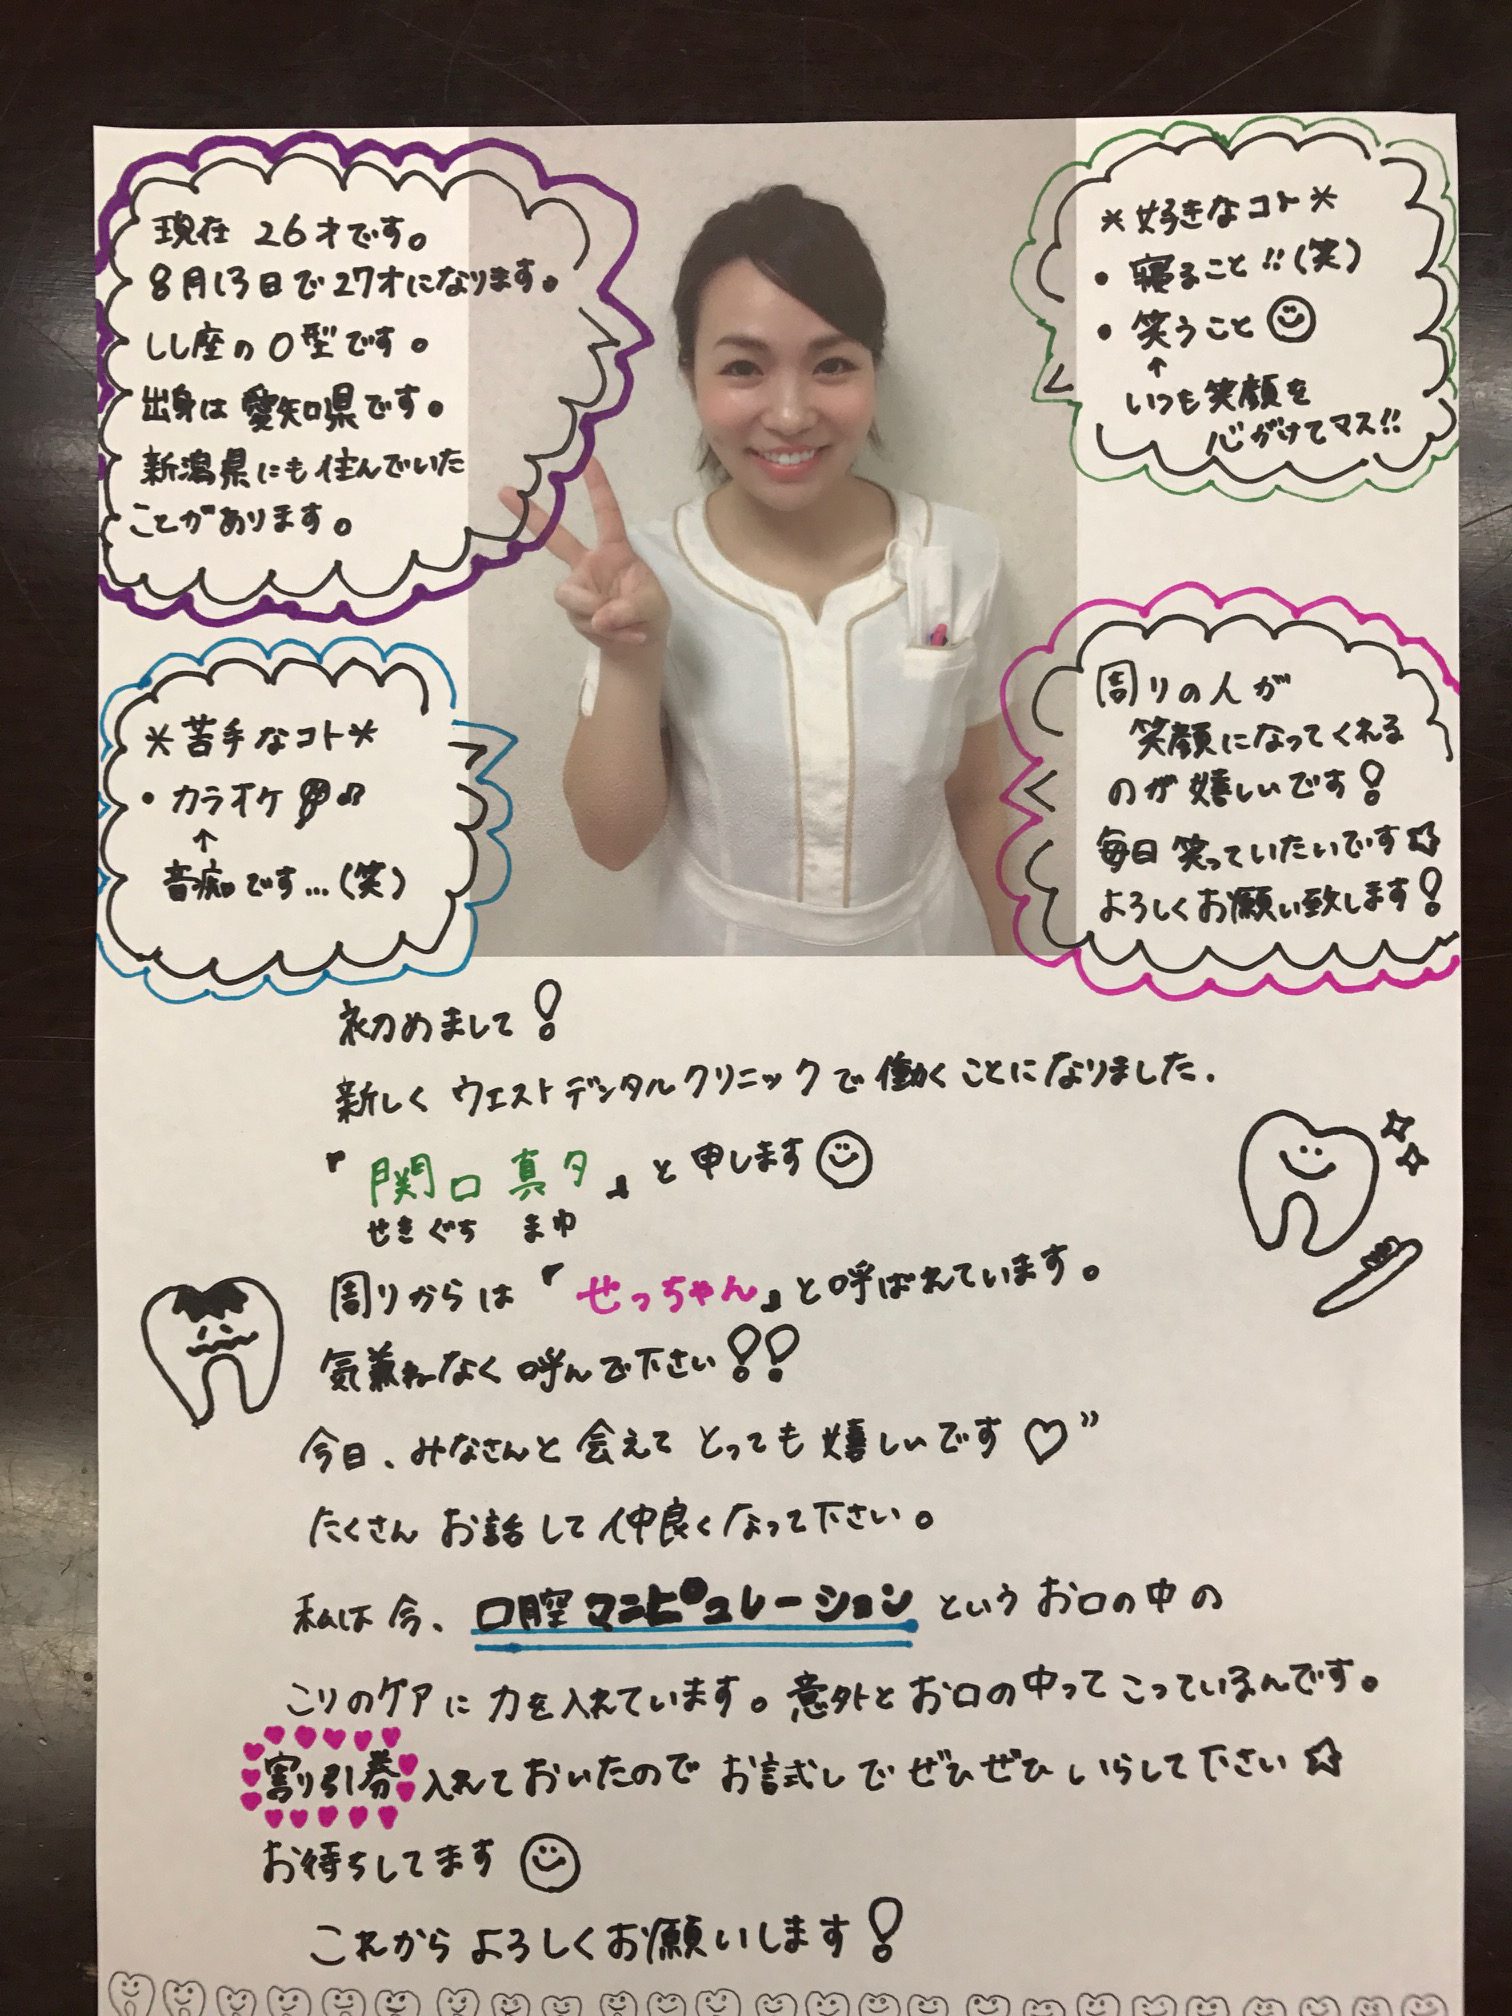 現在 26才です。
8月13日で27才になります。
しし座のO型です。
出身は愛知県です。
新潟県にも住んでいた
ことがあります。
*好きなコト*
・寝ること!!(笑)
・笑うこと
↑
いつも笑顔を
心がけてマス!!
*苦手なコト*
・カラオケ
↑
音痴です...(笑)
周りの人が
笑顔になってくれる
のが嬉しいです!
毎日笑っていたいです☆
よろしくお願い致します!
初めまして!
新しくウエストデンタルクリニックで働くことになりました.
『関口真夕』と申します
せきぐち まゆ
周りからは『せっちゃん』と呼ばれています。
気兼ねなく呼んで下さい!!
今日、みなさんと会えてとっても嬉しいです♡"
たくさんお話して仲良くなって下さい。
私は今、口腔マニピュレーションというお口の中の
こりのケアに力を入れています。意外とお口の中ってこっているんです。
割り引券入れておいたのでお試しでぜひぜひいらして下さい☆
お待ちしてます
これからよろしくお願いします!